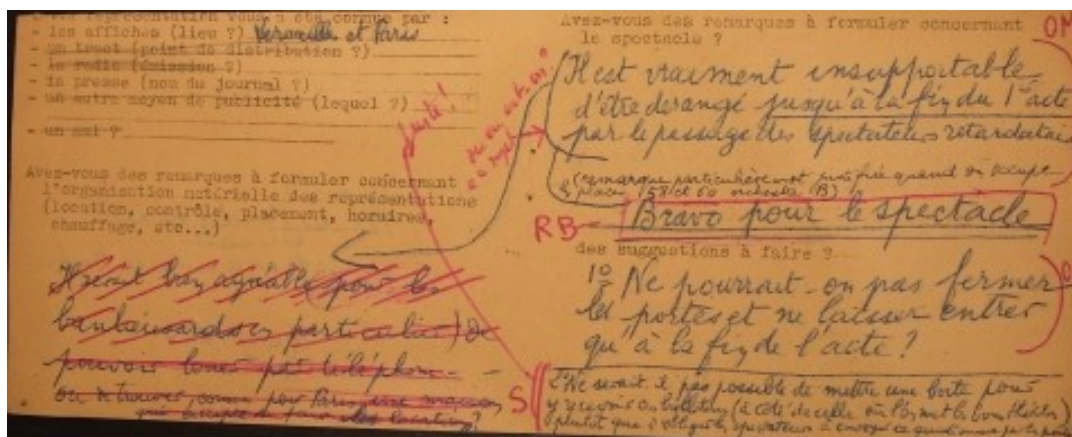 Cette représentation vous a été connue par :
- les affiches (lieu ?) Versailles et Paris
- un tract (point de distribution ?)
- la radio (émission ?)
- la presse (nom du journal ?)
- un autre moyen de publicité (lequel ?)
- un ami ?
Avez-vous des remarques à formuler concernant
l'organisation matérielle des représentations
(location, contrôle, placement, horaires,
chauffage, etc...)
Il serait bien agréable pour les
banlieusards (en particulier) de
pouvoir louer par téléphone
ou trouver, comme pour Paris, une
qui
Avez-vous des remarques à formuler concernant
le spectacle ?
OM
Il est vraiment insupportable
d'être derangé jusqu'à la fin du 1er acte
par le passage des spectateurs retardatai
(remarque particulièrement justifiée quand on occupe
place 58 et 60 B)
RB
Bravo pour le spectacle
des suggestions à faire ?
1º Ne pourrait-on pas fermer
les portes et ne laisser entrer
qu'à la fin de l'acte ?
S
2º Ne serait-il pas possible de mettre une boite pour
y recevoir ces bulletins (à côté de celle où l'on met les bons théâtre)
plutôt que d'obliger les spectateurs à envoyer ce questionnaire par la poste